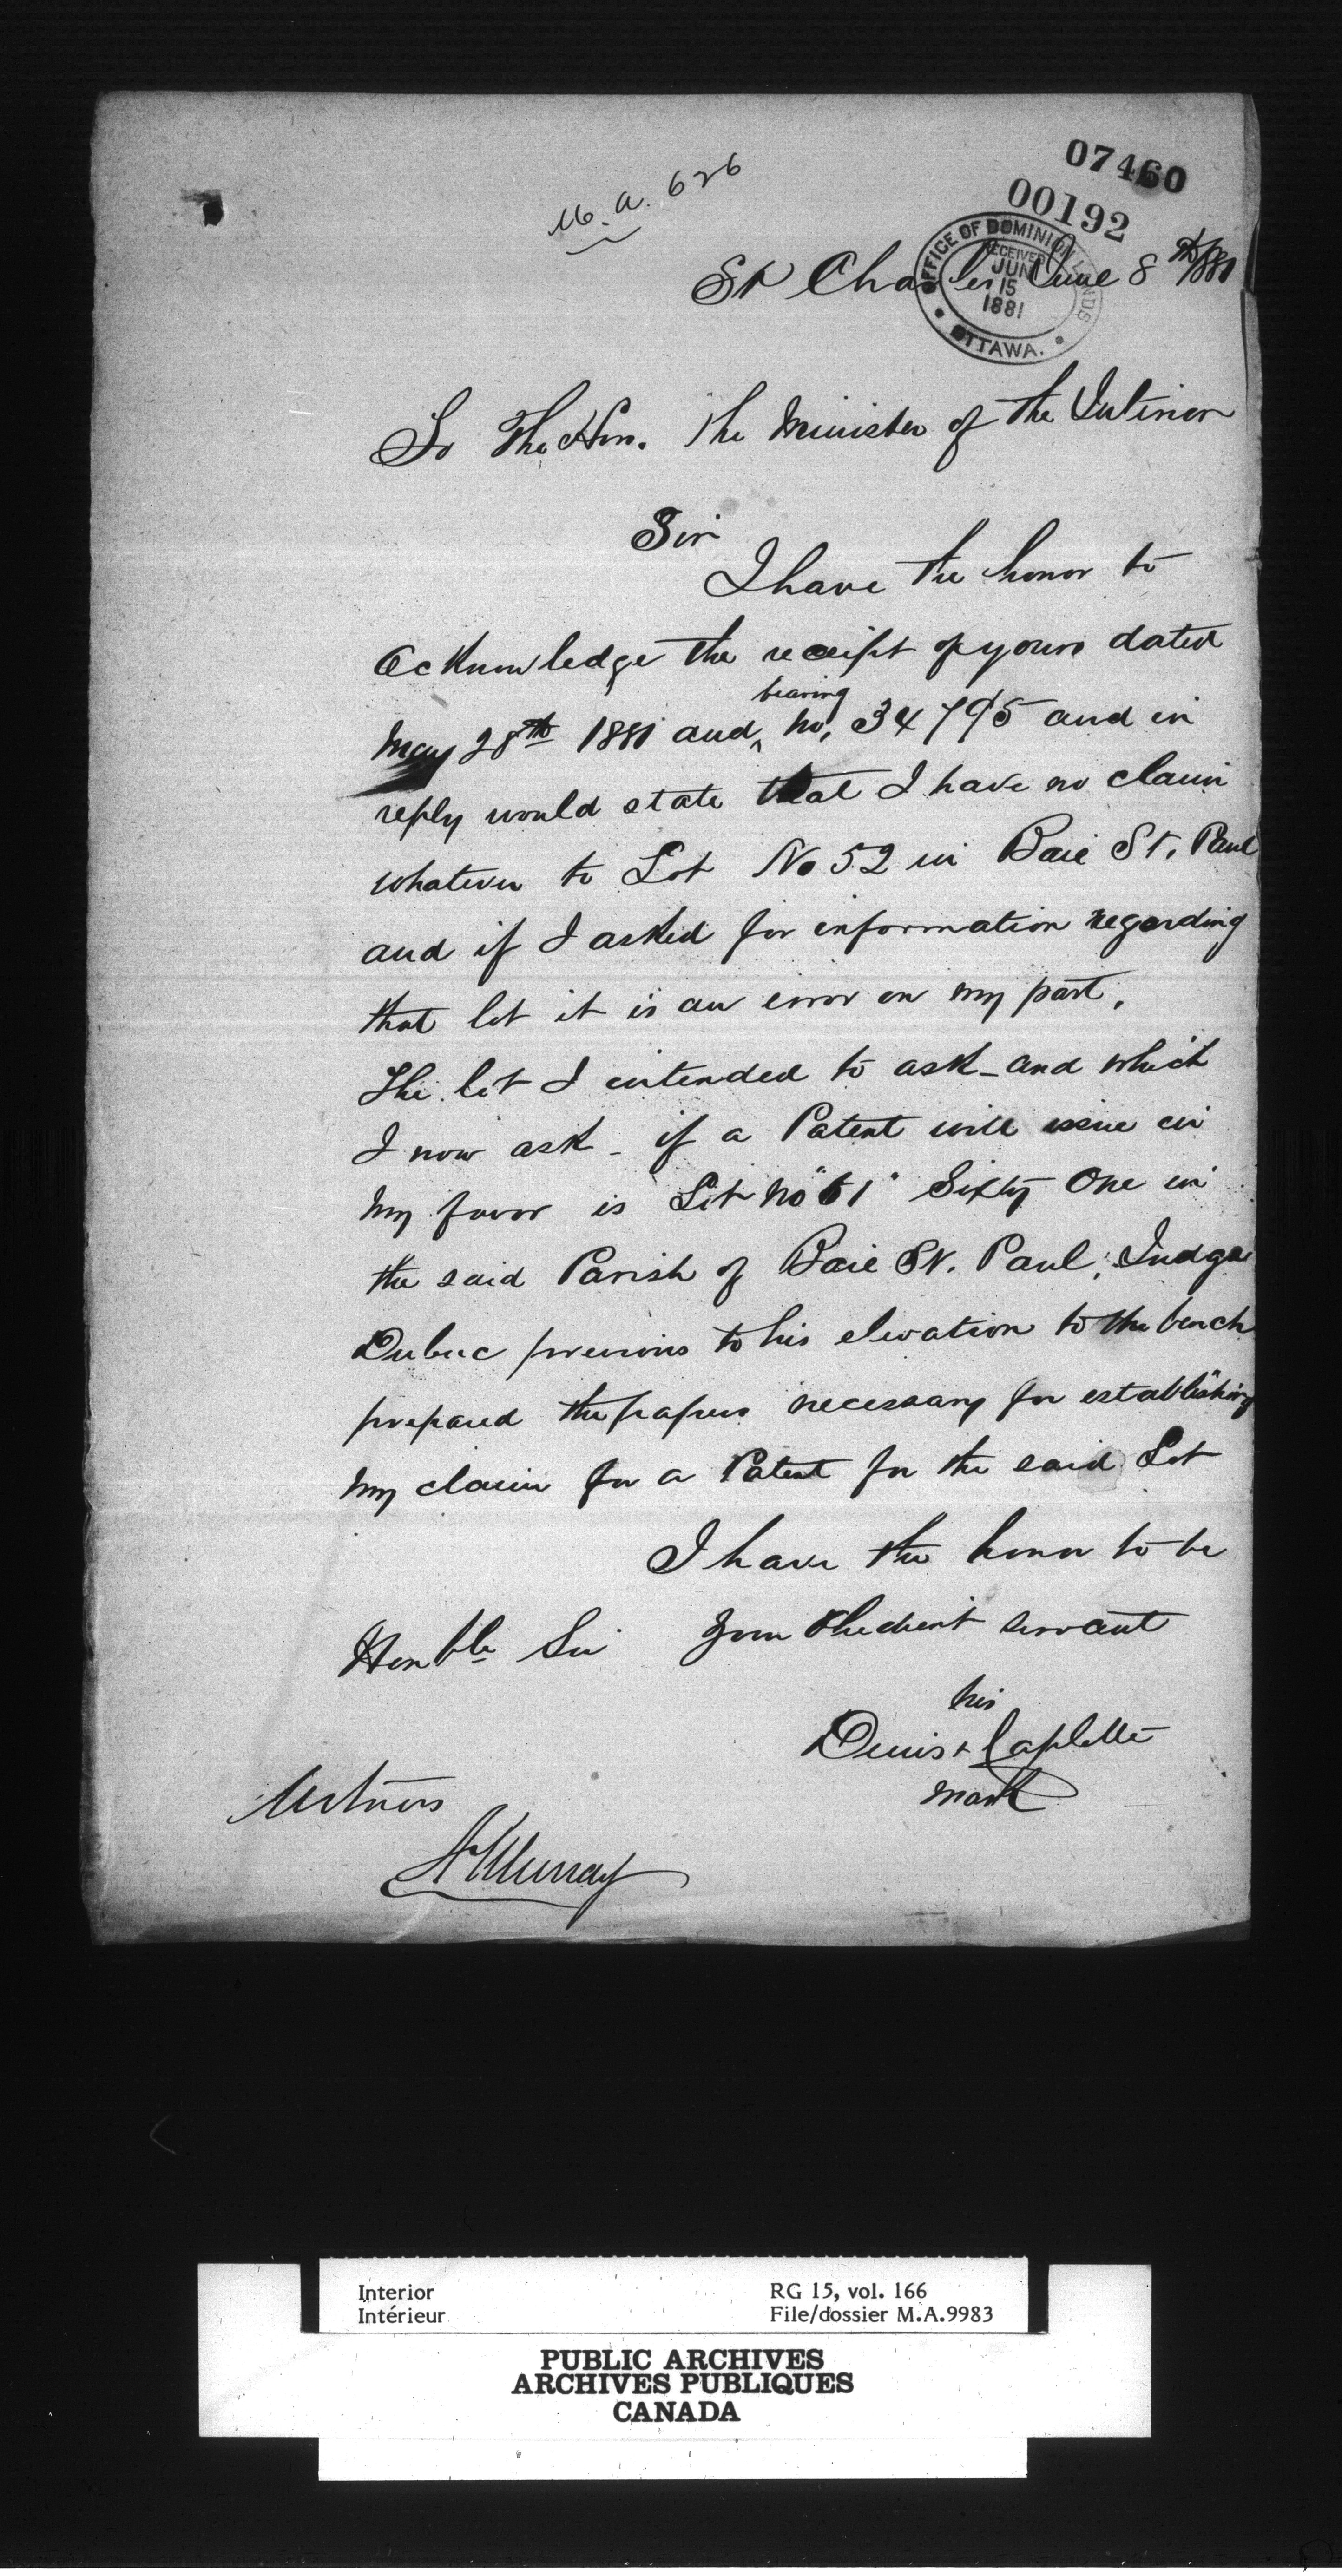 07460
00192
M.A. 626
OFFICE OF DOMINION LANDS
RECEIVED
JUN
15
1881
OTTAWA.
St Charles June 8th 1881
To The Hon. The Minister of the Interior
Sir
I have the honor to
acknowledge the receipt of yours dated
bearing
May 28th 1881 and ^ No, 34795 and in
reply would state that I have no claim
whatever to Lot No 52 in Baie St. Paul
and if I asked for information regarding
that lot it is an error on my part.
The lot I intended to ask - and which
I now ask - if a Patent will issue in
my favor is Lot No "61" Sixty One in
the said Parish of Baie St. Paul. Judge
Dubuc previous to his elevation to the bench
prepared the papers necessary for establishing
my claim for a Patent for the said Lot
I have the honor to be
Honble Sir your obedient servant
his
Denis + Laplette
mark
Witness
A Murray
Interior RG 15, vol. 166
Intérieur File/dossier M.A.9983
PUBLIC ARCHIVES
ARCHIVES PUBLIQUES
CANADA